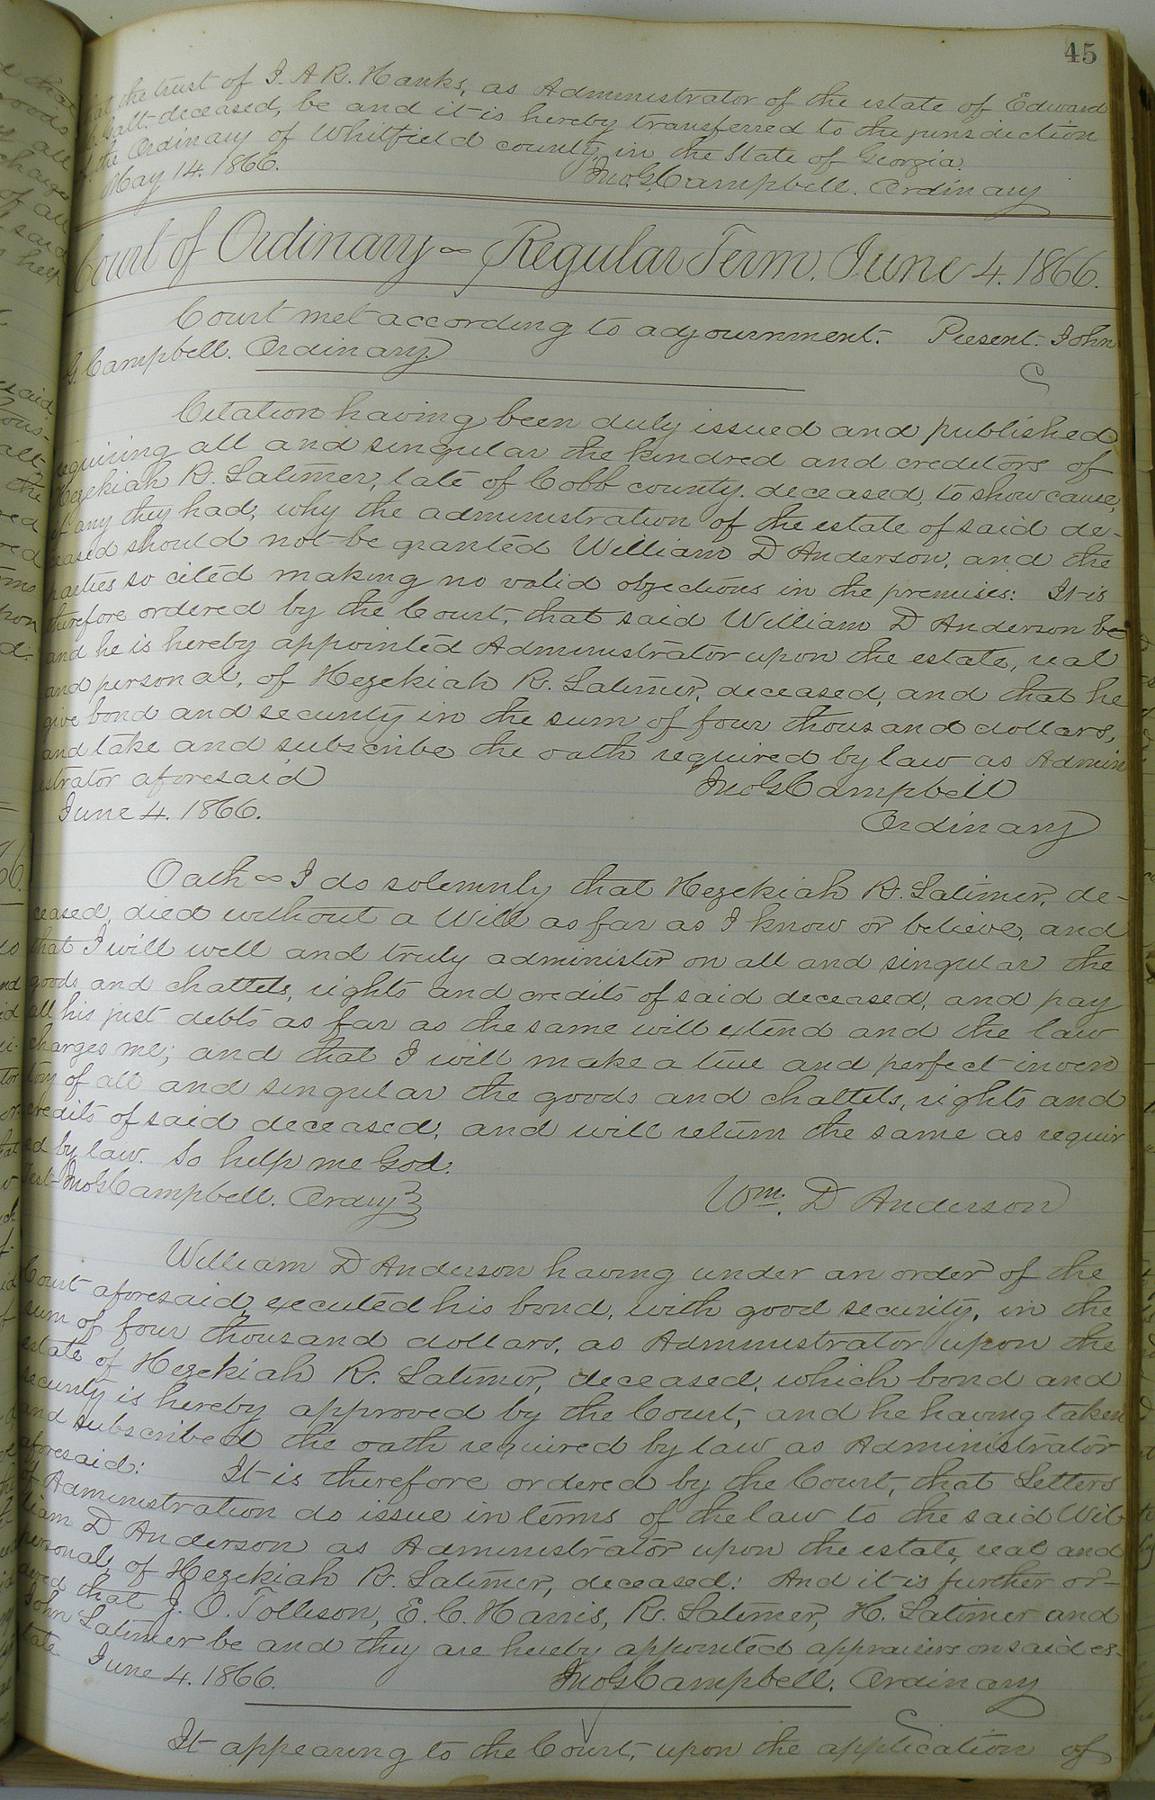 45
that the trust of J. A. R. Hanks, as Administrator of the estate of Edward
Galt deceased, be and it is hereby transferred to the jurisdiction
of the Ordinary of Whitfield county, in the State of Georgia.
May 14. 1866. Jno. G. Campbell. Ordinary
Court of Ordinary ~ Regular Term, June 4. 1866.
Court met according to adjournment. Present John
G. Campbell. Ordinary
Citation having been duly issued and published
requiring all and singular the kindred and creditors of
Hezekiah R. Latimer, late of Cobb county. deceased, to show cause,
if any they had, why the administration of the estate of said de-
ceased should not be granted William D Anderson, and the
parties so cited making no valid objections in the premises: It is
therefore ordered by the Court, that said William D Anderson be
and he is hereby appointed Administrator upon the estate, real
and personal, of Hezekiah R. Latimer, deceased, and that he
give bond and security in the sum of four thousand dollars,
and take and subscribe the oath required by law as Admin
istrator aforesaid Jno G Campbell
June 4. 1866. Ordinary
Oath ~ I do solemnly that Hezekiah R. Latimer, de-
ceased, died without a Will as far as I know or believe, and
that I will well and truly administer on all and singular the
goods and chattels, rights and credits of said deceased, and pay
all his just debts as far as the same will extend and the law
charges me; and that I will make a true and perfect inven
tory of all and singular the goods and chattels, rights and
credits of said deceased, and will return the same as requir
ed by law. So help me God.
Test Jno G Campbell. Ordry Wm. D Anderson
William D Anderson having under an order of the
Court aforesaid, executed his bond, with good security, in the
sum of four thousand dollars, as Administrator upon the
estate of Hezekiah R. Latimer, deceased, which bond and
security is hereby approved by the Court, and he having taken
and subscribed the oath required by law as Administrator
aforesaid: It is therefore ordered by the Court, that Letters
of Administration do issue in terms of the law to the said Wil
liam D Anderson as Administrator upon the estate, real and
personal, of Hezekiah R. Latimer, deceased: And it is further or-
dered that J. O. Tolleson, E. C. Harris, R. Latimer, H. Latimer and
John Latimer be and they are hereby appointed appraisers on said es-
tate June 4. 1866. Jno G Campbell. Ordinary
It appearing to the Court, upon the application of